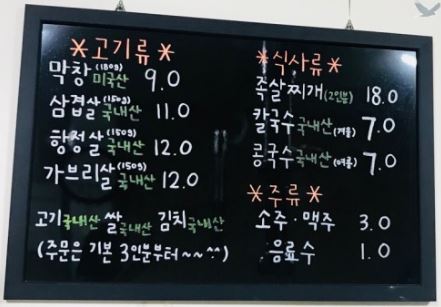 *고기류*
막창(180g) 미국산 9.0
삼겹살(150g) 국내산 11.0
항정살(150g) 국내산 12.0
가브리살(150g) 국내산 12.0
고기 국내산 쌀 국내산 김치 국내산
(주문은 기본 3인분부터~~^^)
*식사류*
족살찌개(2인분) 18.0
칼국수 국내산(겨울) 7.0
콩국수 국내산(여름) 7.0
*주류*
소주·맥주 3.0
음료수 1.0